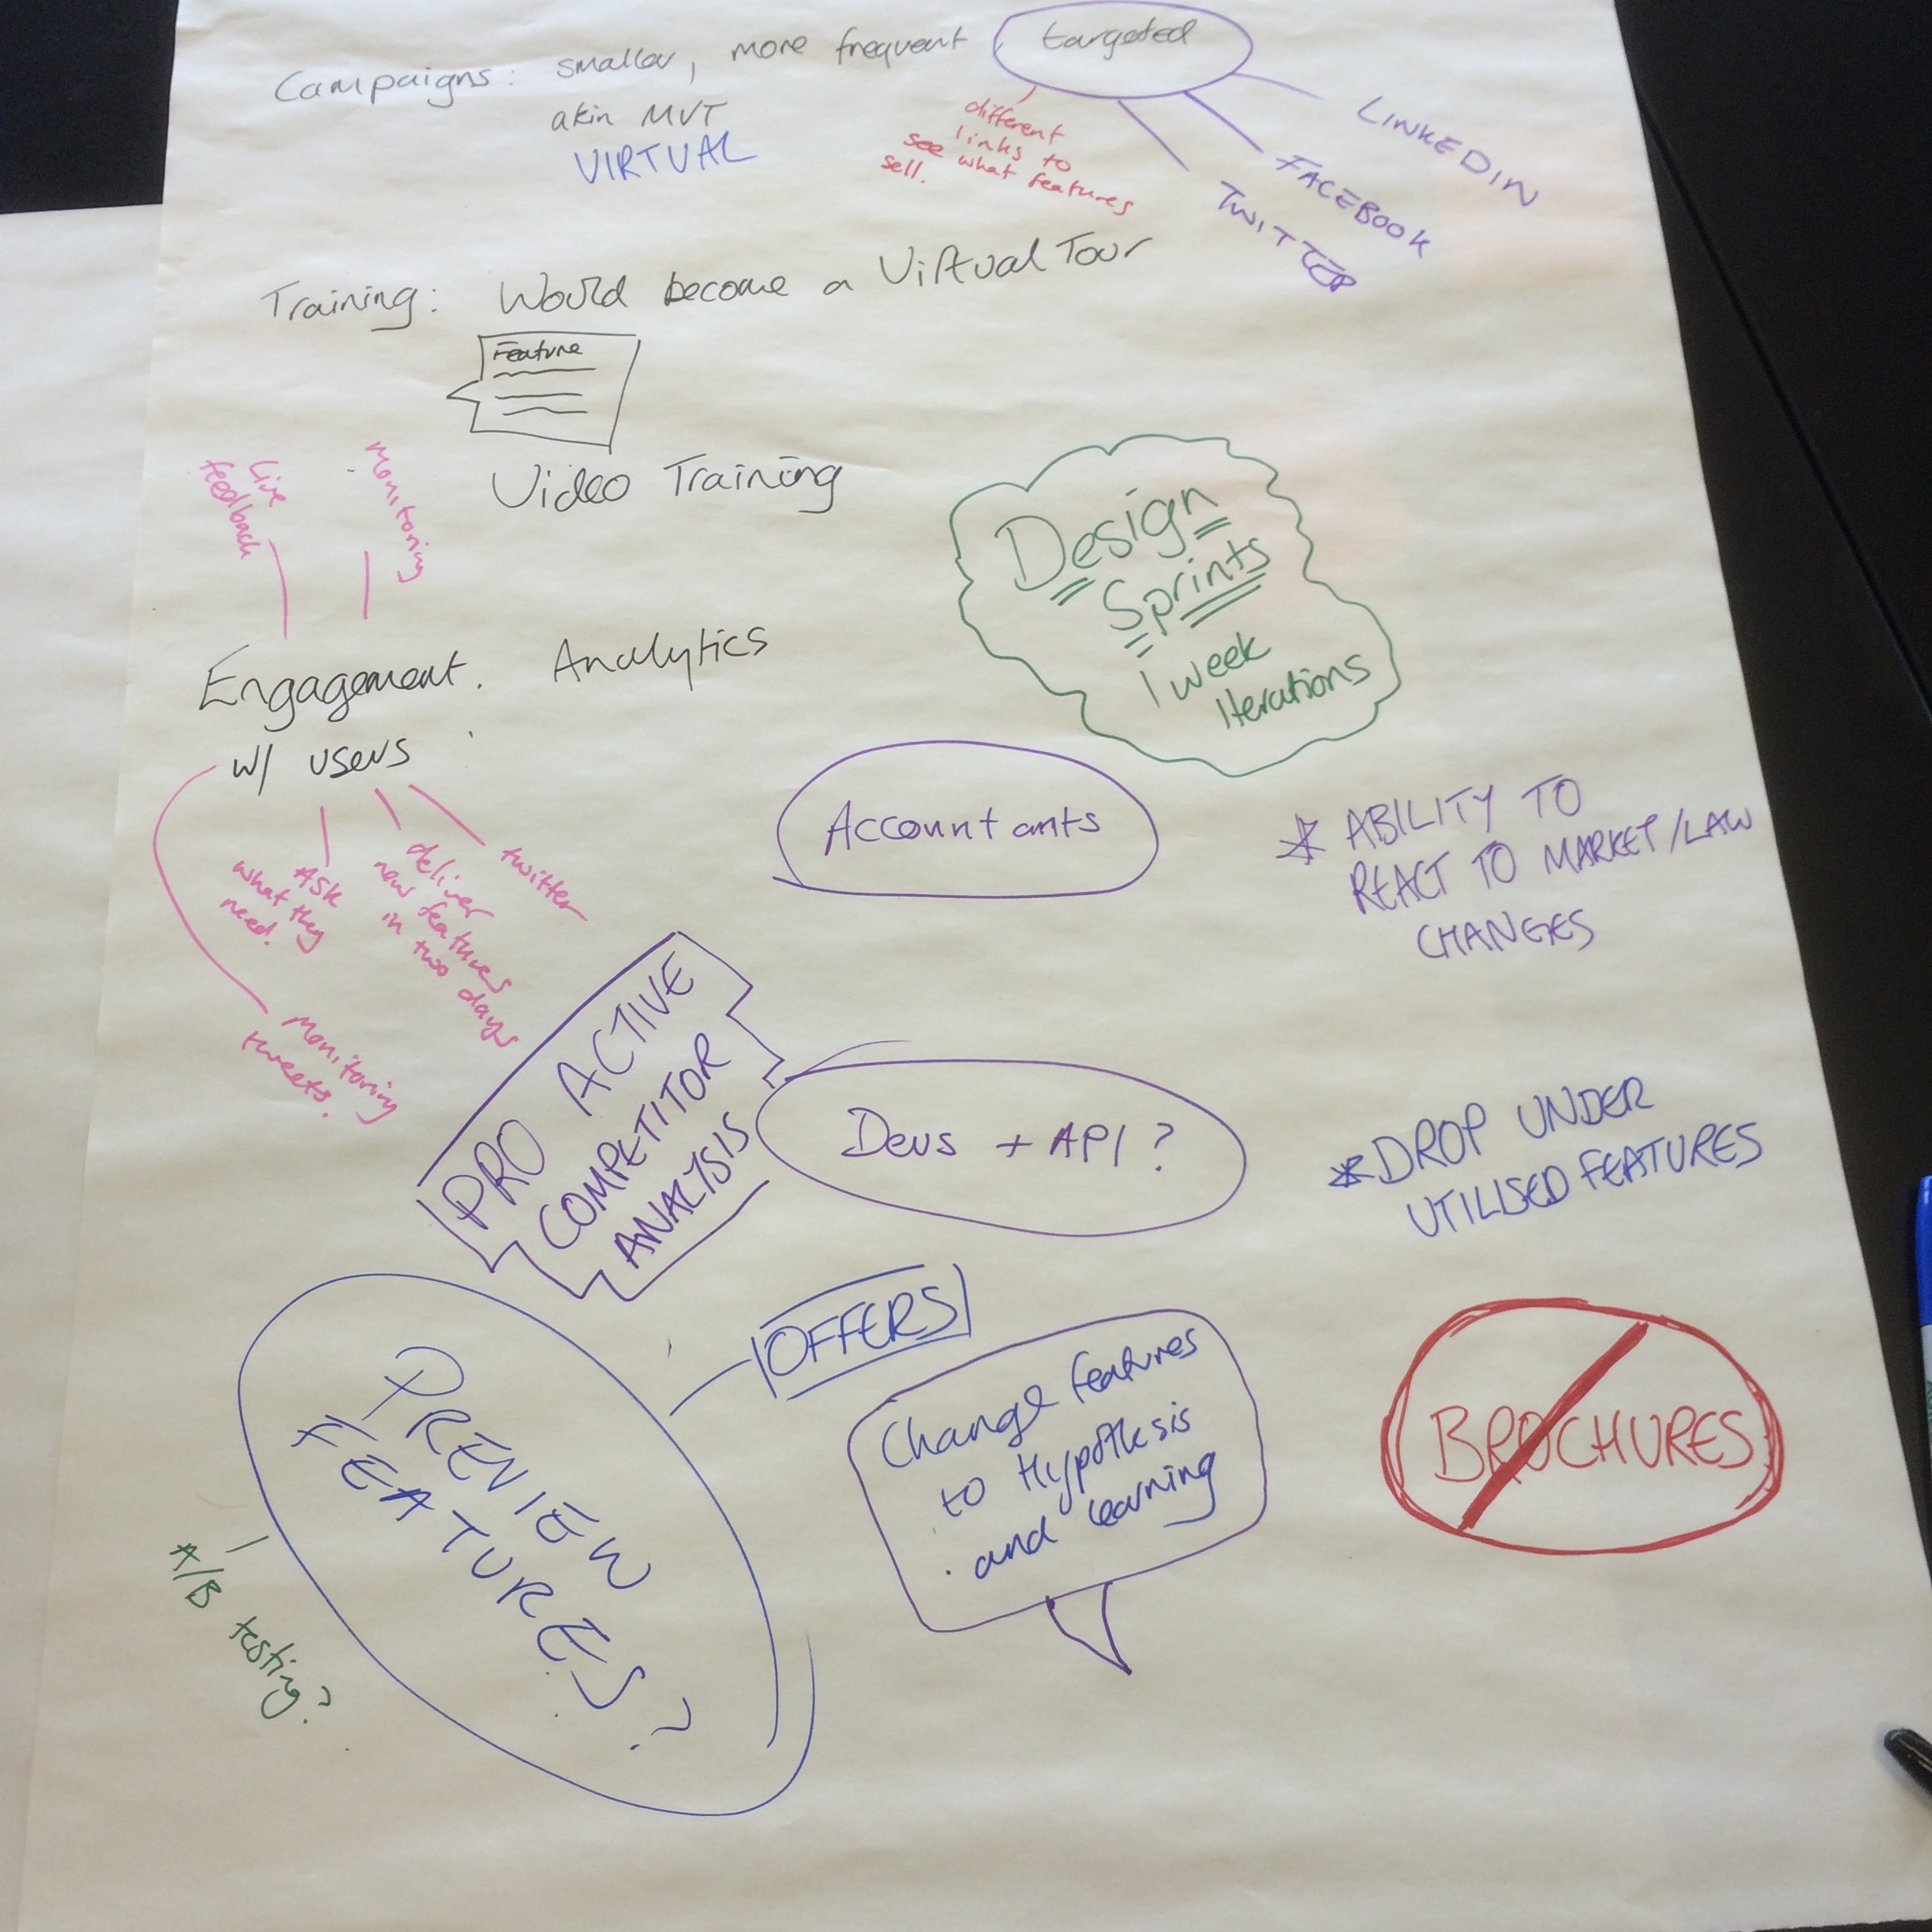 Campaigns: smaller, more frequent targeted
akin MVT
VIRTUAL
different
links to
see what features
sell.
LINKEDIN
FACEBOOK
TWITTER
Training: Would become a Virtual Tour
Feature
Video Training
Live
feedback
Monitoring
Design
Sprints
1 week
Iterations
Engagement. Analytics
w/ users
Ask
what they
need.
deliver
new features
in two days
twitter
Monitoring
tweets.
Accountants
* ABILITY TO
REACT TO MARKET/LAW
CHANGES
PRO ACTIVE
COMPETITOR
ANALYSIS
Devs + API?
* DROP UNDER
UTILISED FEATURES
OFFERS
PREVIEW
FEATURES?
A/B testing?
Change features
to Hypothesis
and learning
BROCHURES